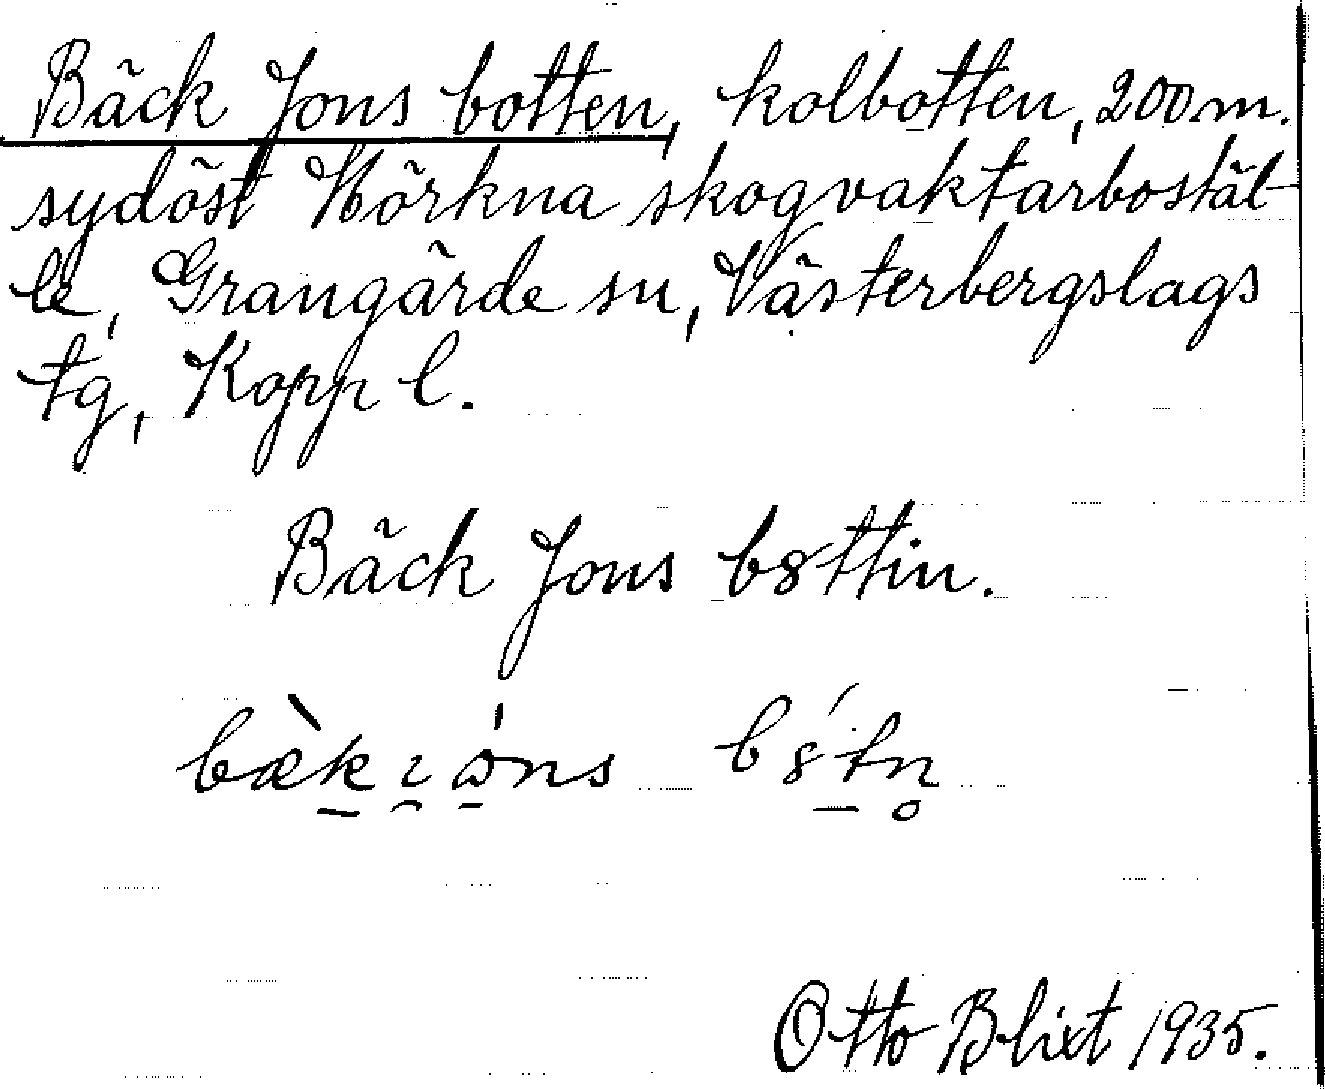 Bäck Jons botten, kolbotten, 200 m.
sydöst Hörkna skogvaktarbostäl-
le, Grangärde sn, Västerbergslags
tg, Kopp l.
Bäck Jons b8ttin.
Otto Blixt 1935.